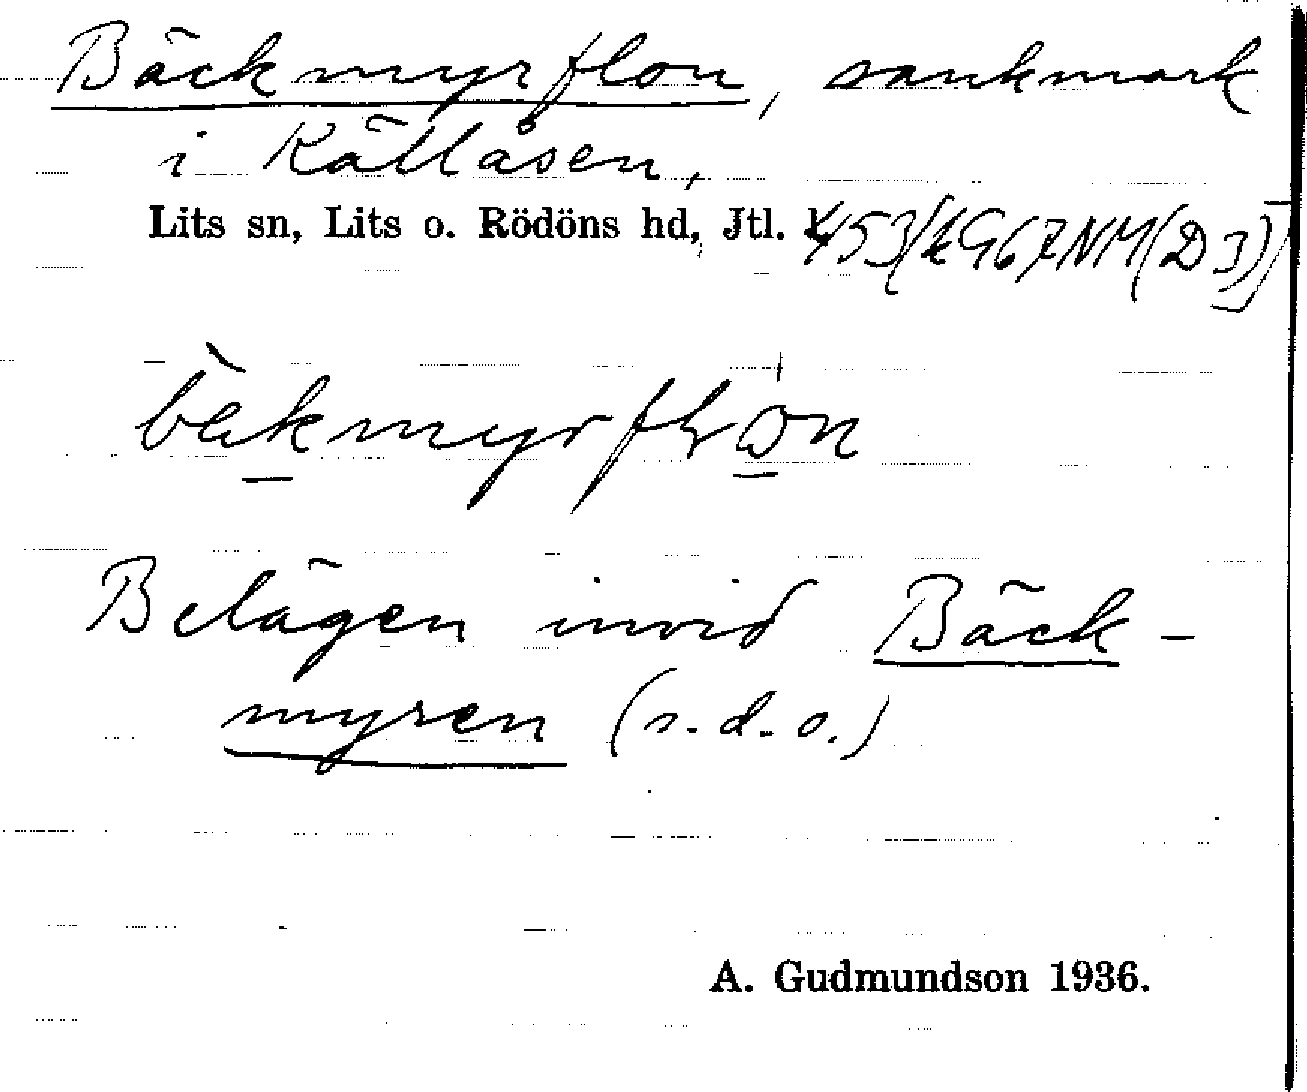 Bäckmyrflon, sankmark
i Källåsen,
Lits sn, Lits o. Rödöns hd, Jtl.
Belägen invid Bäck-
myren (s.d.o.)
A. Gudmundson 1936.